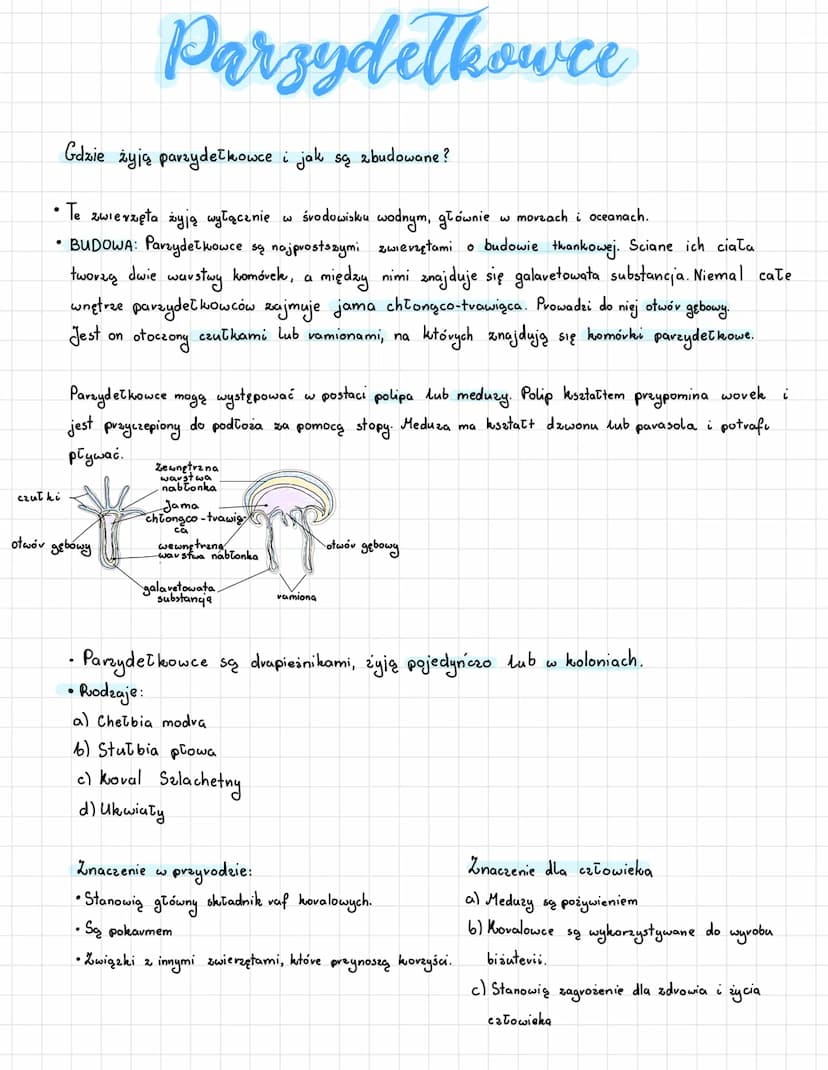 Parzydełkowce
Gdzie żyją parzydełkowce i jak są zbudowane?
• Te zwierzęta żyją wyłącznie w środowisku wodnym, głównie w morzach i oceanach.
• BUDOWA: Parzydełkowce są najprostszymi zwierzętami o budowie tkankowej. Ściane ich ciała
tworzą dwie warstwy komórek, a między nimi znajduje się galaretowata substancja. Niemal całe
wnętrze parzydełkowców zajmuje jama chłonąco-trawiąca. Prowadzi do niej otwór gębowy.
Jest on otoczony czułkami lub ramionami, na których znajdują się komórki parzydełkowe.
Parzydełkowce mogą występować w postaci polipa lub meduzy. Polip kształtem przypomina worek i
jest przyczepiony do podłoża za pomocą stopy. Meduza ma kształt dzwonu lub parasola i potrafi
pływać.
czułki
otwór gębowy
zewnętrzna
warstwa
nabłonka
Jama
chłonąco-trawią-
ca
wewnętrzna
warstwa nabłonka
galaretowata
substancja
otwór gębowy
ramiona
• Parzydełkowce są drapieżnikami, żyją pojedyńczo lub w koloniach.
• Rodzaje:
a) Chełbia modra
b) Stułbia płowa
c) Koral Szlachetny
d) Ukwiały
Znaczenie w przyrodzie:
• Stanowią główny składnik raf koralowych.
• Są pokarmem
• Związki z innymi zwierzętami, które przynoszą korzyści.
Znaczenie dla człowieka
a) Meduzy są pożywieniem
b) Koralowce są wykorzystywane do wyrobu
biżuterii.
c) Stanowią zagrożenie dla zdrowia i życia
człowieka